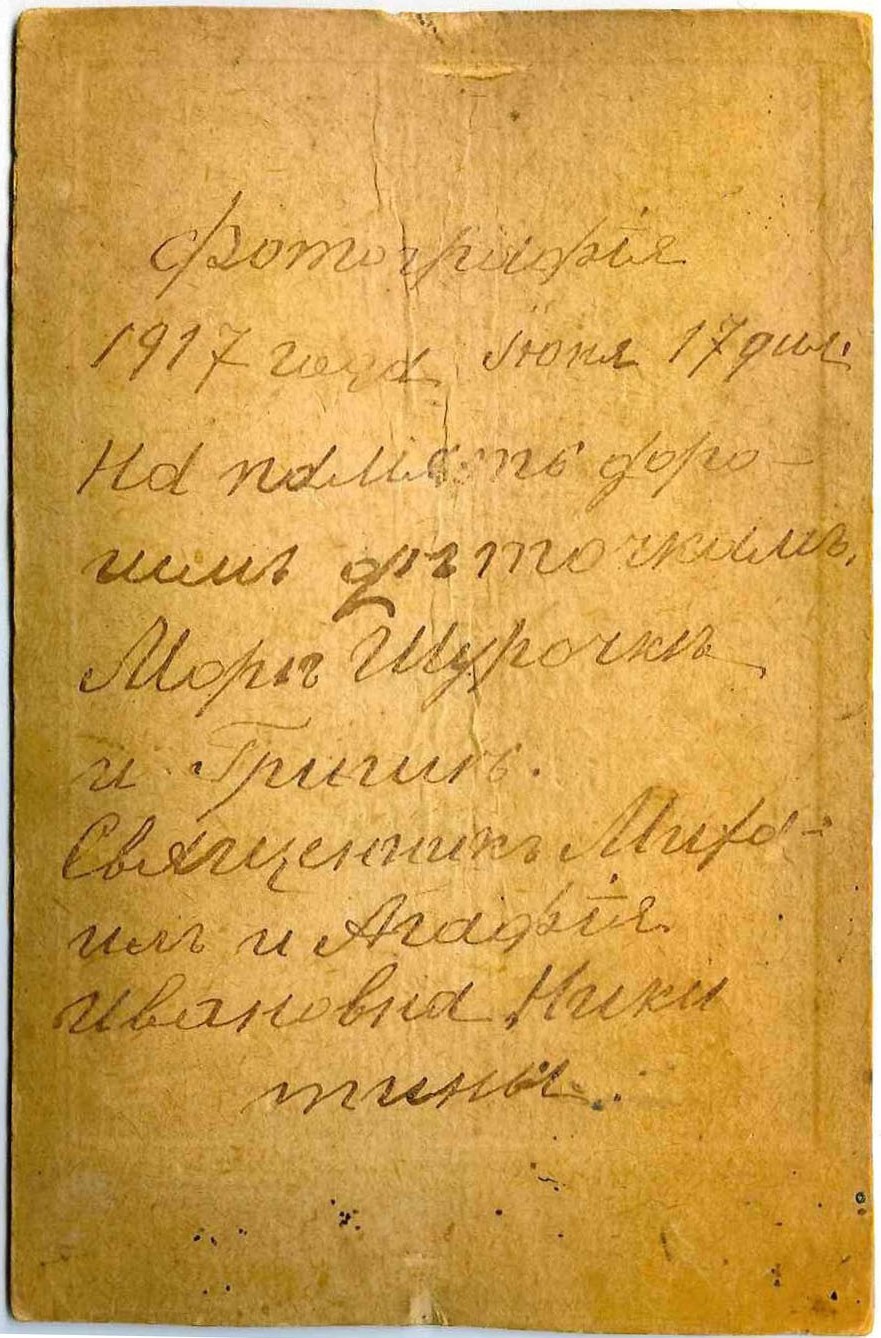 Фотографія
1917 года Іюня 17 дня.
На память доро-
гимъ дѣточкамъ,
Морѣ Шурочкѣ
и Гришѣ.
Священникъ Миха-
илъ и Агафія
Ивановна Ники
тины.